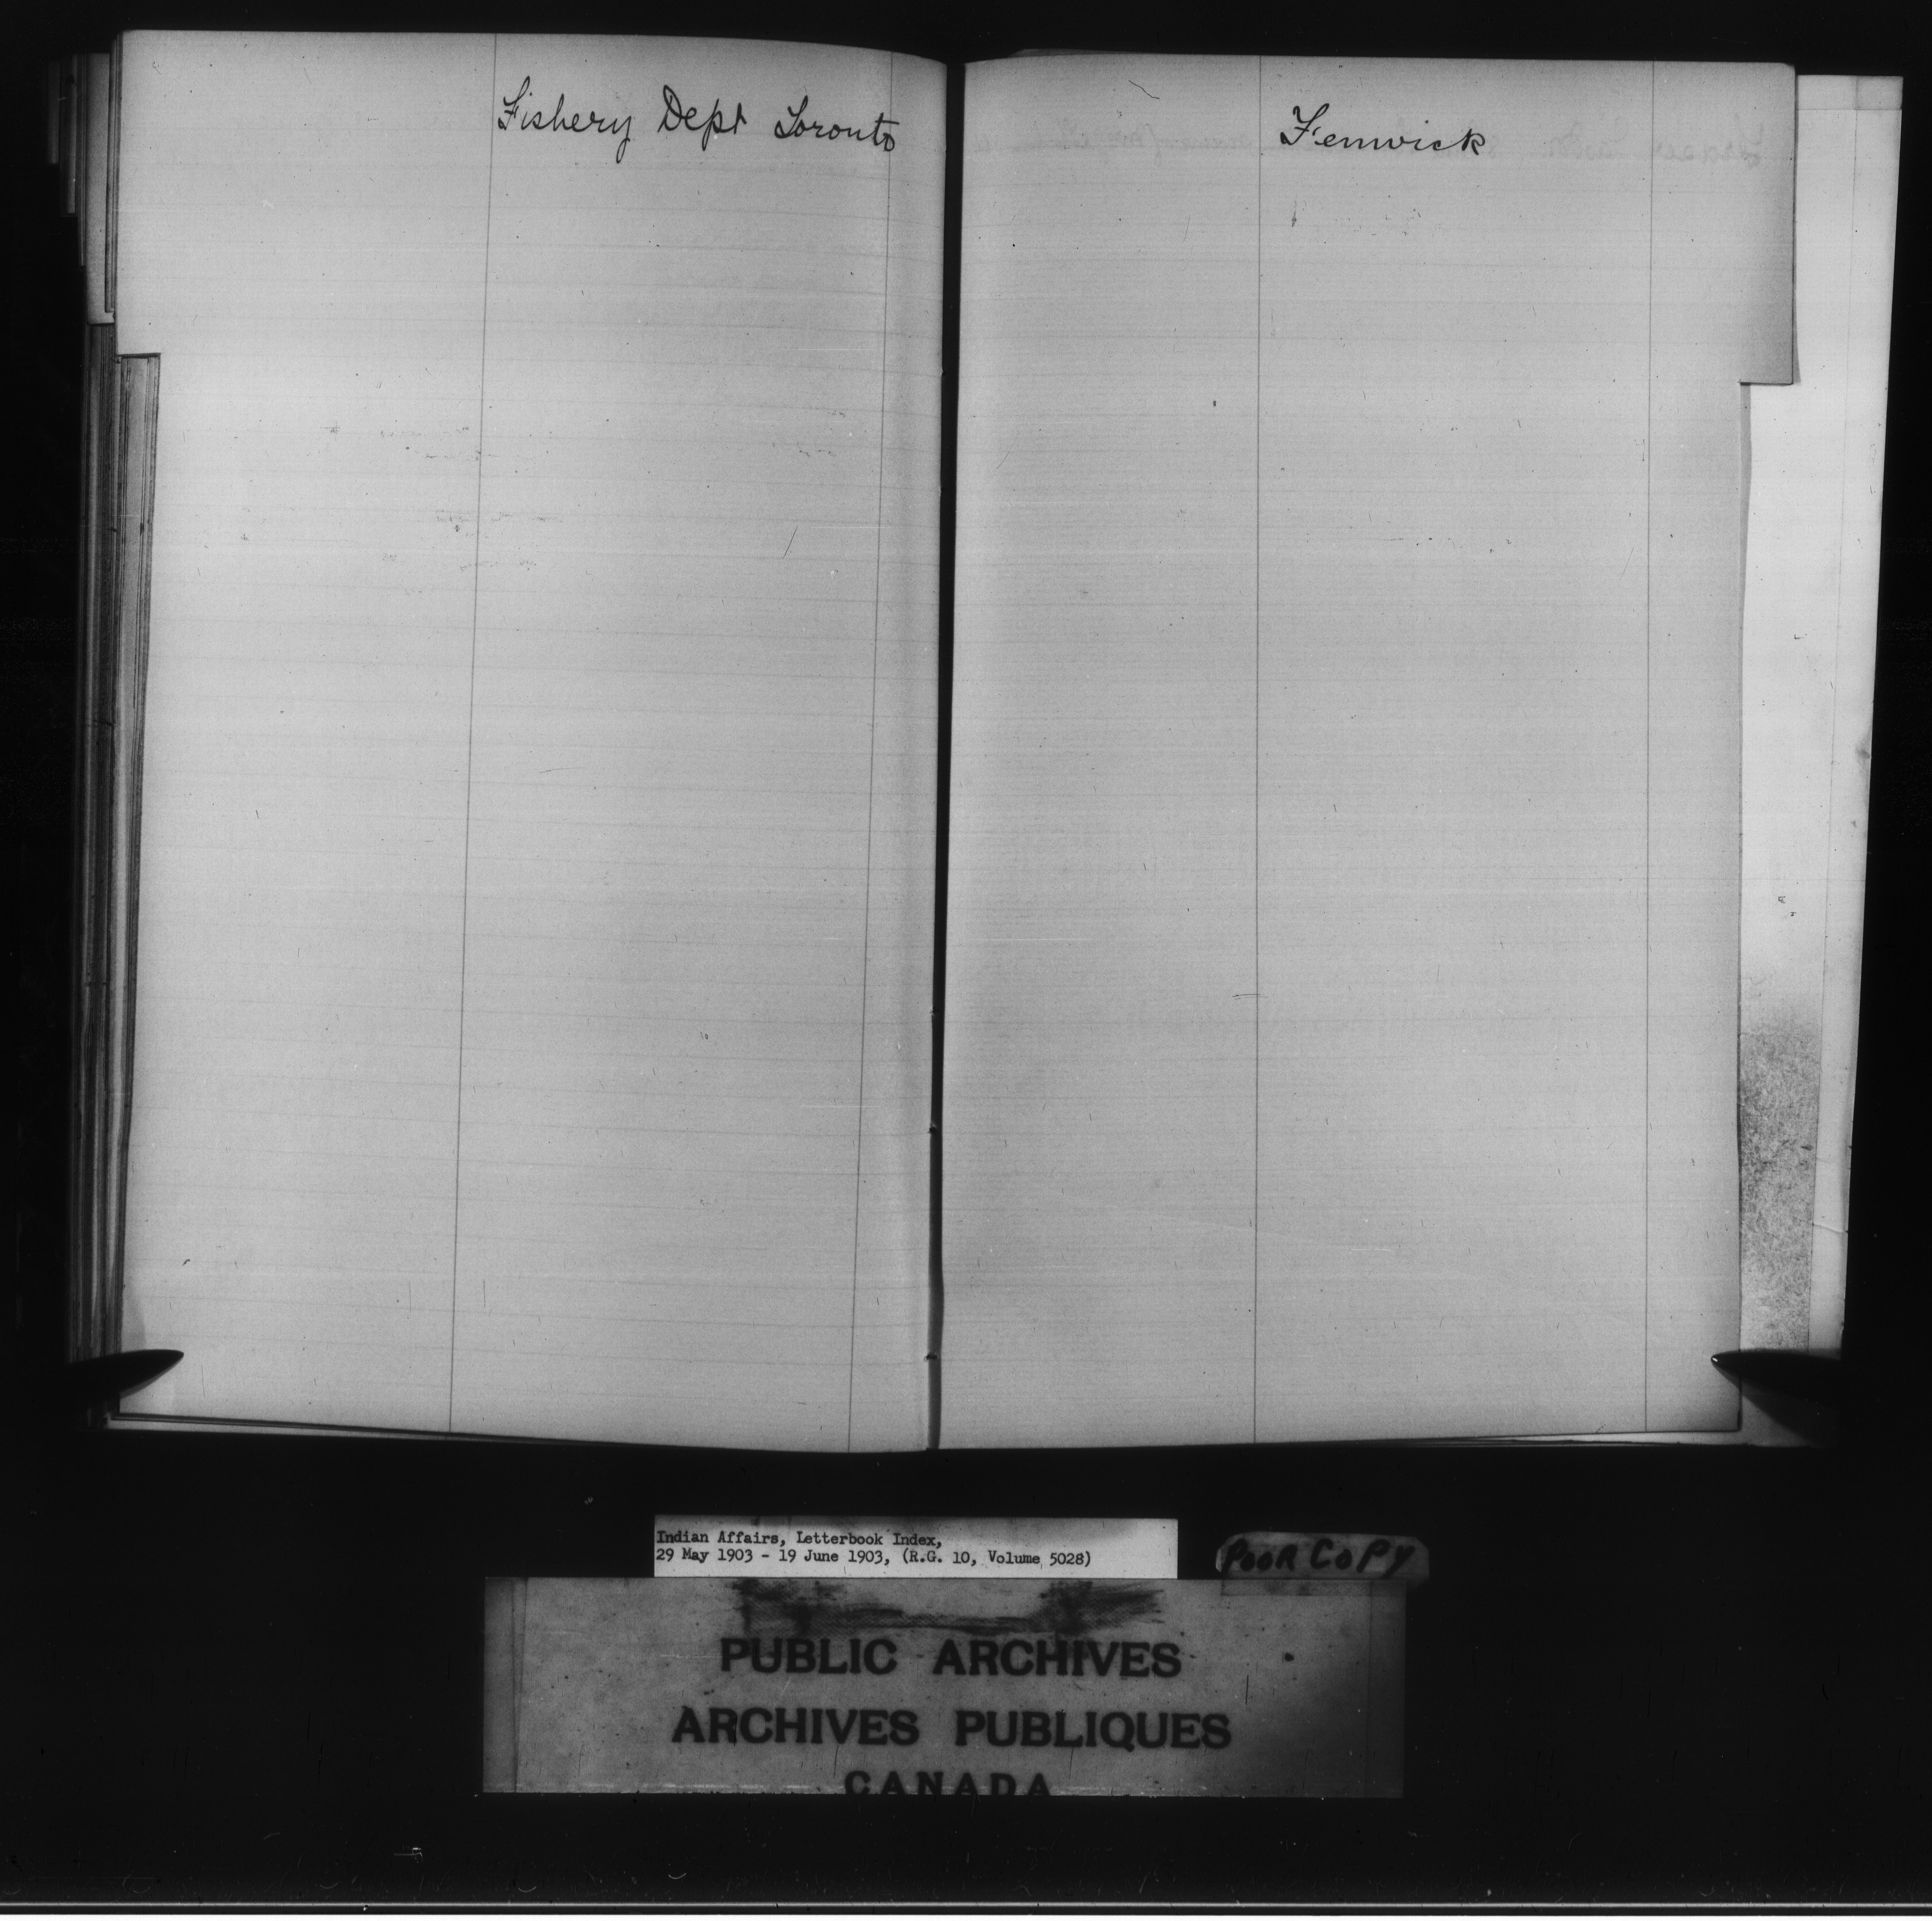 Fishery Dept Toronto
Fenwick
Indian Affairs, Letterbook Index,
29 May 1903 - 19 June 1903, (R.G. 10, Volume 5028)
POOR COPY
PUBLIC ARCHIVES
ARCHIVES PUBLIQUES
CANADA